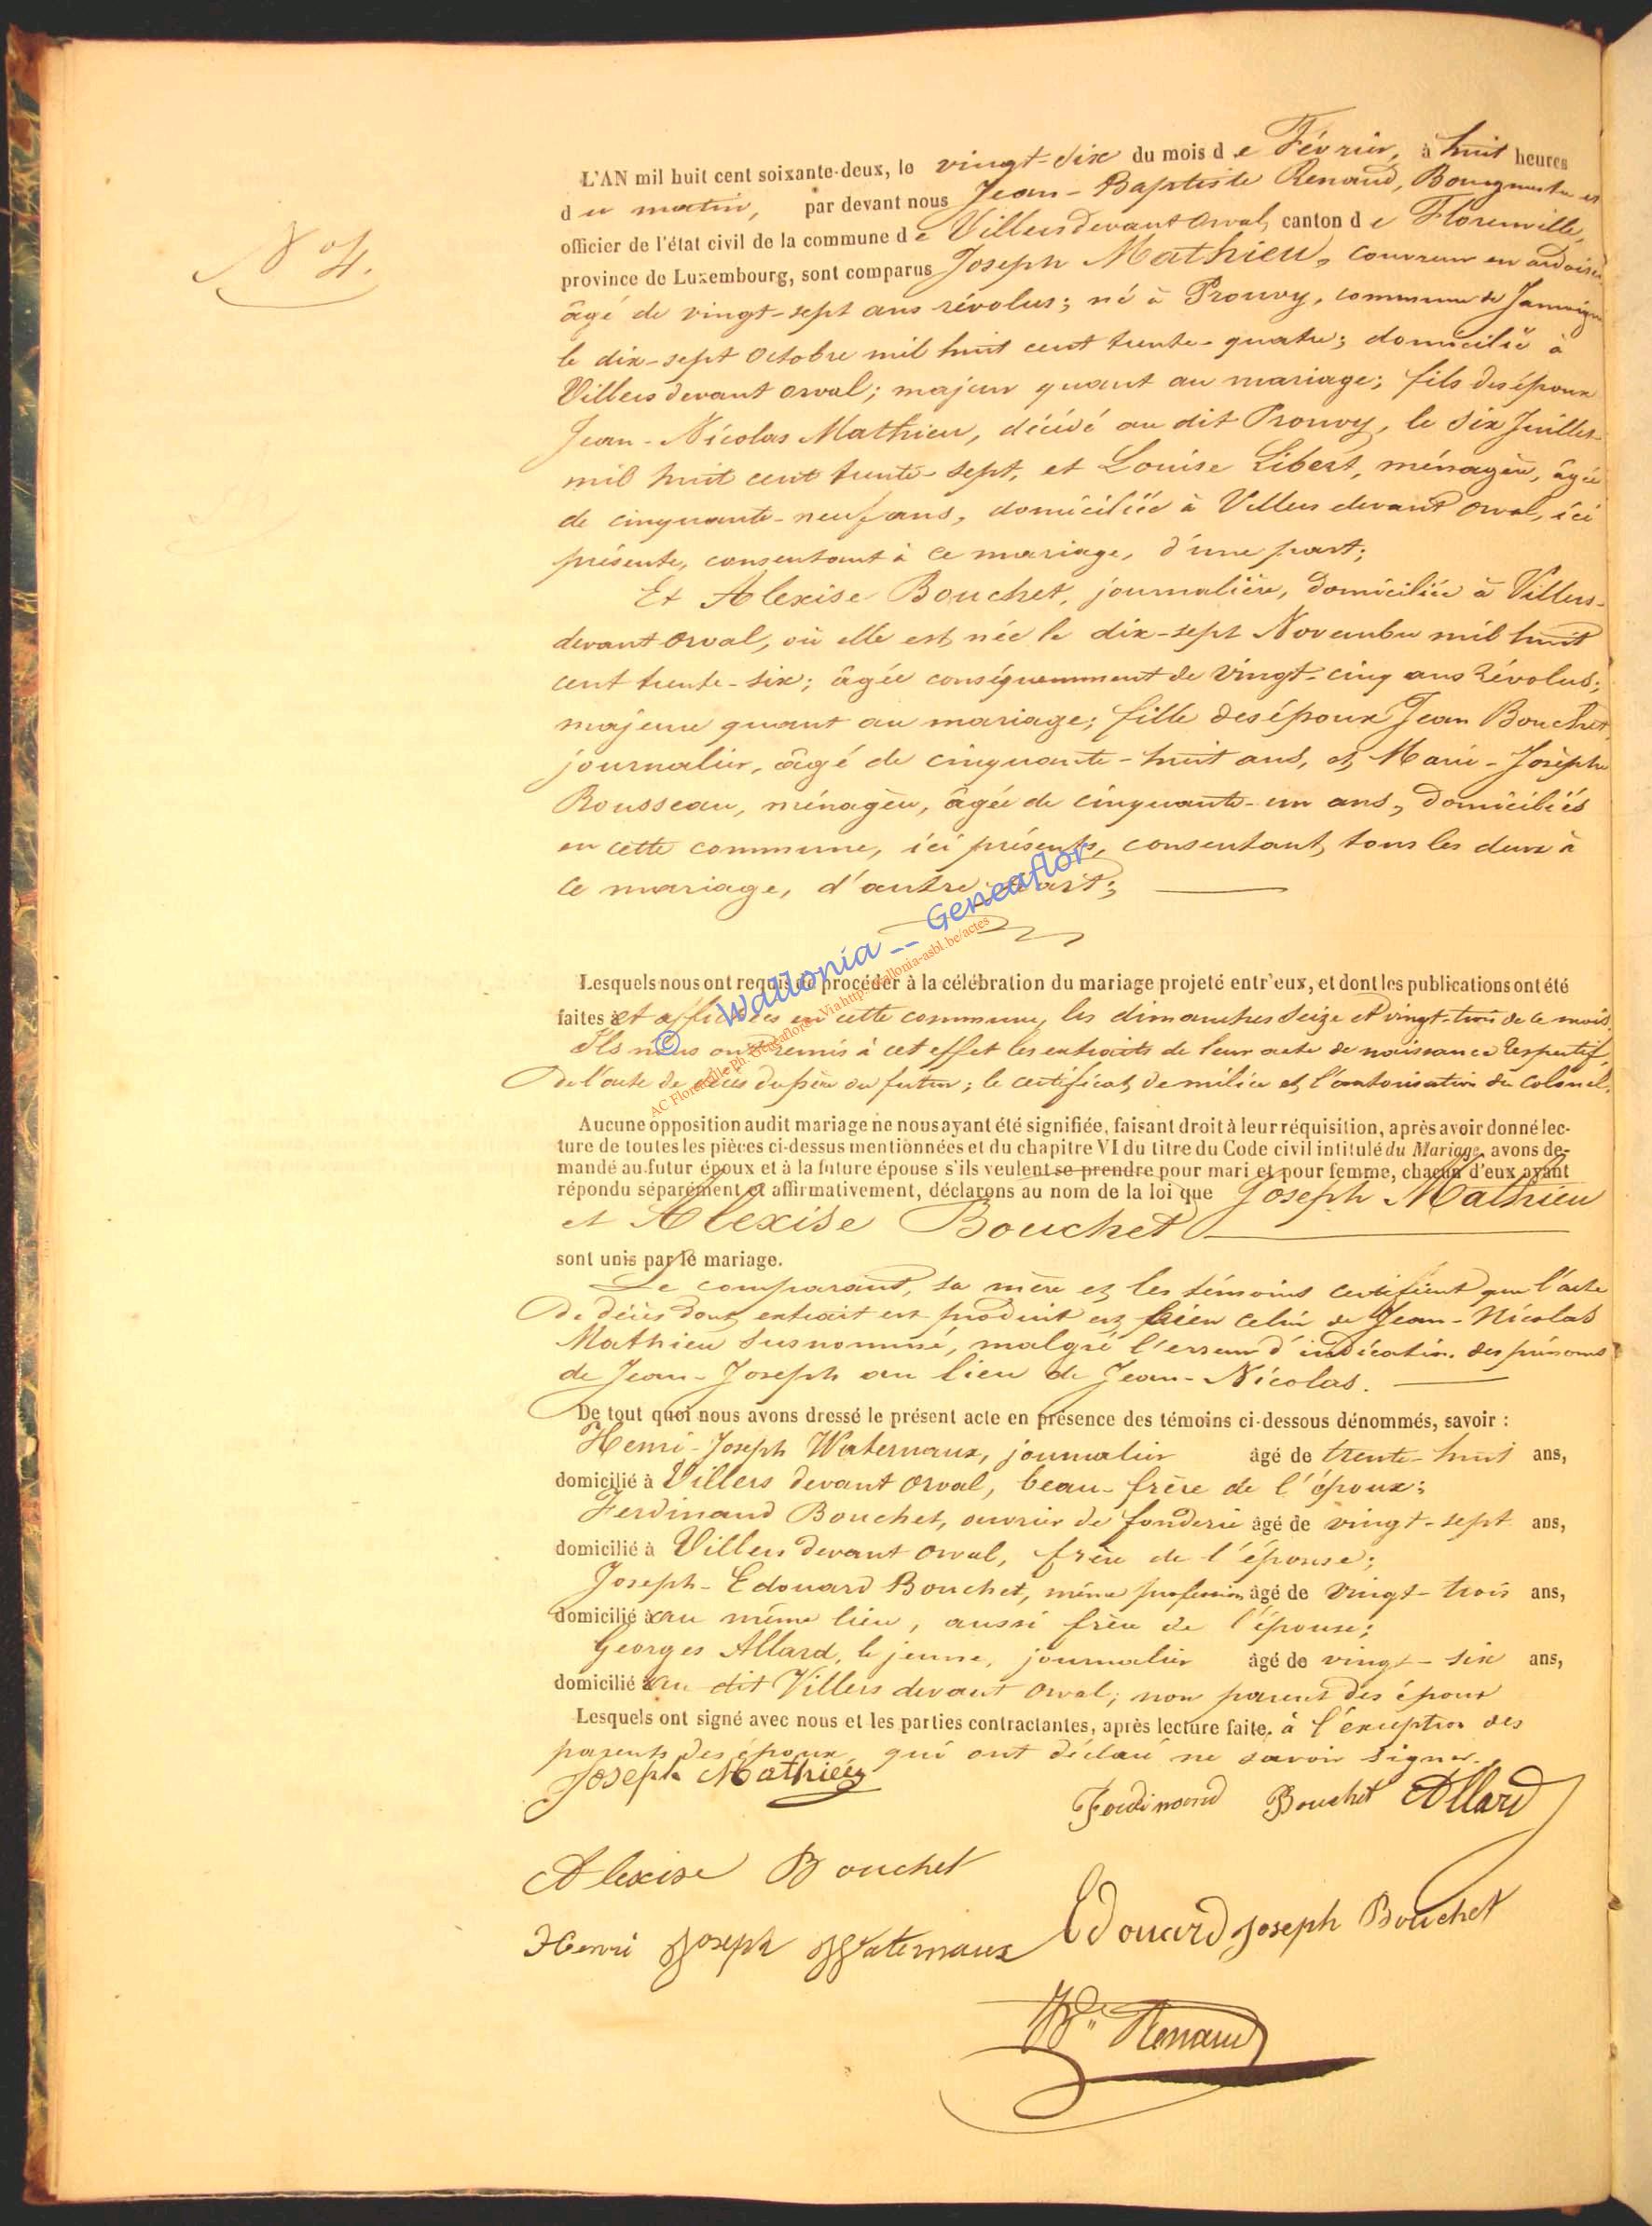 N° 4.
L'AN mil huit cent soixante-deux, le vingt-six du mois de Février, à huit heures
du matin, par devant nous Jean-Baptiste Renaud, Bourgmestre et
officier de l'état civil de la commune de Villers devant Orval, canton de Florenville,
province de Luxembourg, sont comparus Joseph Mathieu, couvreur en ardoises,
âgé de vingt-sept ans révolus; né à Prouvy, commune de Jamoigne
le dix-sept Octobre mil huit cent trente-quatre; domicilié à
Villers devant Orval; majeur quant au mariage; fils des époux
Jean-Nicolas Mathieu, décédé au dit Prouvy, le six Juillet
mil huit cent trente-sept, et Louise Libert, ménagère, âgée
de cinquante-neuf ans, domiciliée à Villers devant Orval, ici
présente, consentant à ce mariage, d'une part;
Et Alexise Bouchet, journalière, domiciliée à Villers-
devant Orval, où elle est née le dix-sept Novembre mil huit
cent trente-six; âgée conséquemment de vingt-cinq ans révolus;
majeure quant au mariage; fille des époux Jean Bouchet,
journalier, âgé de cinquante-huit ans, et Marie-Josèphe
Rousseau, ménagère, âgée de cinquante-un ans, domiciliés
en cette commune, ici présents, consentant tous les deux à
ce mariage, d'autre part;
Lesquels nous ont requis de procéder à la célébration du mariage projeté entr'eux, et dont les publications ont été
faites à et affichées en cette commune, les dimanches seize et vingt-trois de ce mois.
Ils nous ont remis à cet effet les extraits de leur acte de naissance respectif,
de l'acte de décès du père du futur; le certificat de milice et l'autorisation du colonel.
Aucune opposition audit mariage ne nous ayant été signifiée, faisant droit à leur réquisition, après avoir donné lec-
ture de toutes les pièces ci-dessus mentionnées et du chapitre VI du titre du Code civil intitulé du Mariage, avons de-
mandé au futur époux et à la future épouse s'ils veulent se prendre pour mari et pour femme, chacun d'eux ayant
répondu séparément et affirmativement, déclarons au nom de la loi que Joseph Mathieu
et Alexise Bouchet
sont unis par le mariage.
Le comparant, sa mère et les témoins certifient que l'acte
de décès dont extrait est produit est bien celui de Jean-Nicolas
Mathieu susnommé, malgré l'erreur d'indication des prénoms
de Jean-Joseph au lieu de Jean-Nicolas.
De tout quoi nous avons dressé le présent acte en présence des témoins ci-dessous dénommés, savoir :
Henri-Joseph Waternaux, journalier âgé de trente-huit ans,
domicilié à Villers devant Orval, beau-frère de l'époux;
Ferdinand Bouchet, ouvrier de fonderie âgé de vingt-sept ans,
domicilié à Villers devant Orval, frère de l'épouse;
Joseph-Edouard Bouchet, même profession âgé de vingt-trois ans,
domicilié à au même lieu, aussi frère de l'épouse;
Georges Allard, le jeune, journalier âgé de vingt-six ans,
domicilié à au dit Villers devant Orval; non parent des époux
Lesquels ont signé avec nous et les parties contractantes, après lecture faite, à l'exception des
parents des époux qui ont déclaré ne savoir signer.
Joseph Mathieu
Ferdinand Bouchet Allard
Alexise Bouchet
Edouard Joseph Bouchet
Henri Joseph Waternaux
Renaud
© Wallonia -- Geneaflor
AC Florenville Ph. Geneaflor - Via http://wallonia-asbl.be/actes